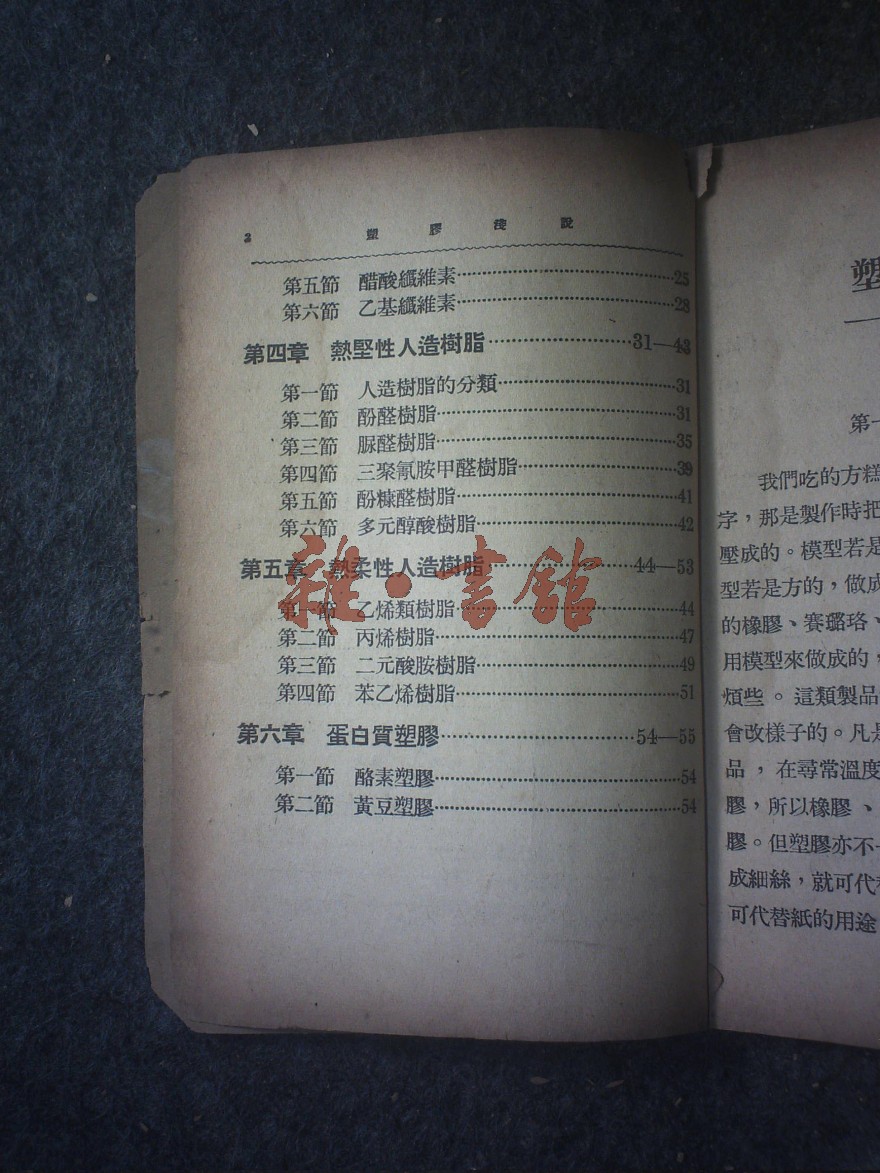 2 塑膠淺說
第五節 醋酸纖維素……25
第六節 乙基纖維素……28
第四章 熱堅性人造樹脂……31—43
第一節 人造樹脂的分類……31
第二節 酚醛樹脂……31
第三節 脲醛樹脂……35
第四節 三聚氰胺甲醛樹脂……39
第五節 酚糠醛樹脂……41
第六節 多元醇酸樹脂……42
第五章 熱柔性人造樹脂……44—53
第一節 乙烯類樹脂……44
第二節 丙烯樹脂……47
第三節 二元酸胺樹脂……49
第四節 苯乙烯樹脂……51
第六章 蛋白質塑膠……54—55
第一節 酪素塑膠……54
第二節 黃豆塑膠……54
雜·書館
塑
第一
我們吃的方糕
字，那是製作時把
壓成的。模型若是
型若是方的，做成
的橡膠、賽璐珞、
用模型來做成的，
煩些。這類製品
會改樣子的。凡是
品，在尋常溫度
膠，所以橡膠、
膠。但塑膠亦不
成細絲，就可代
可代替紙的用途